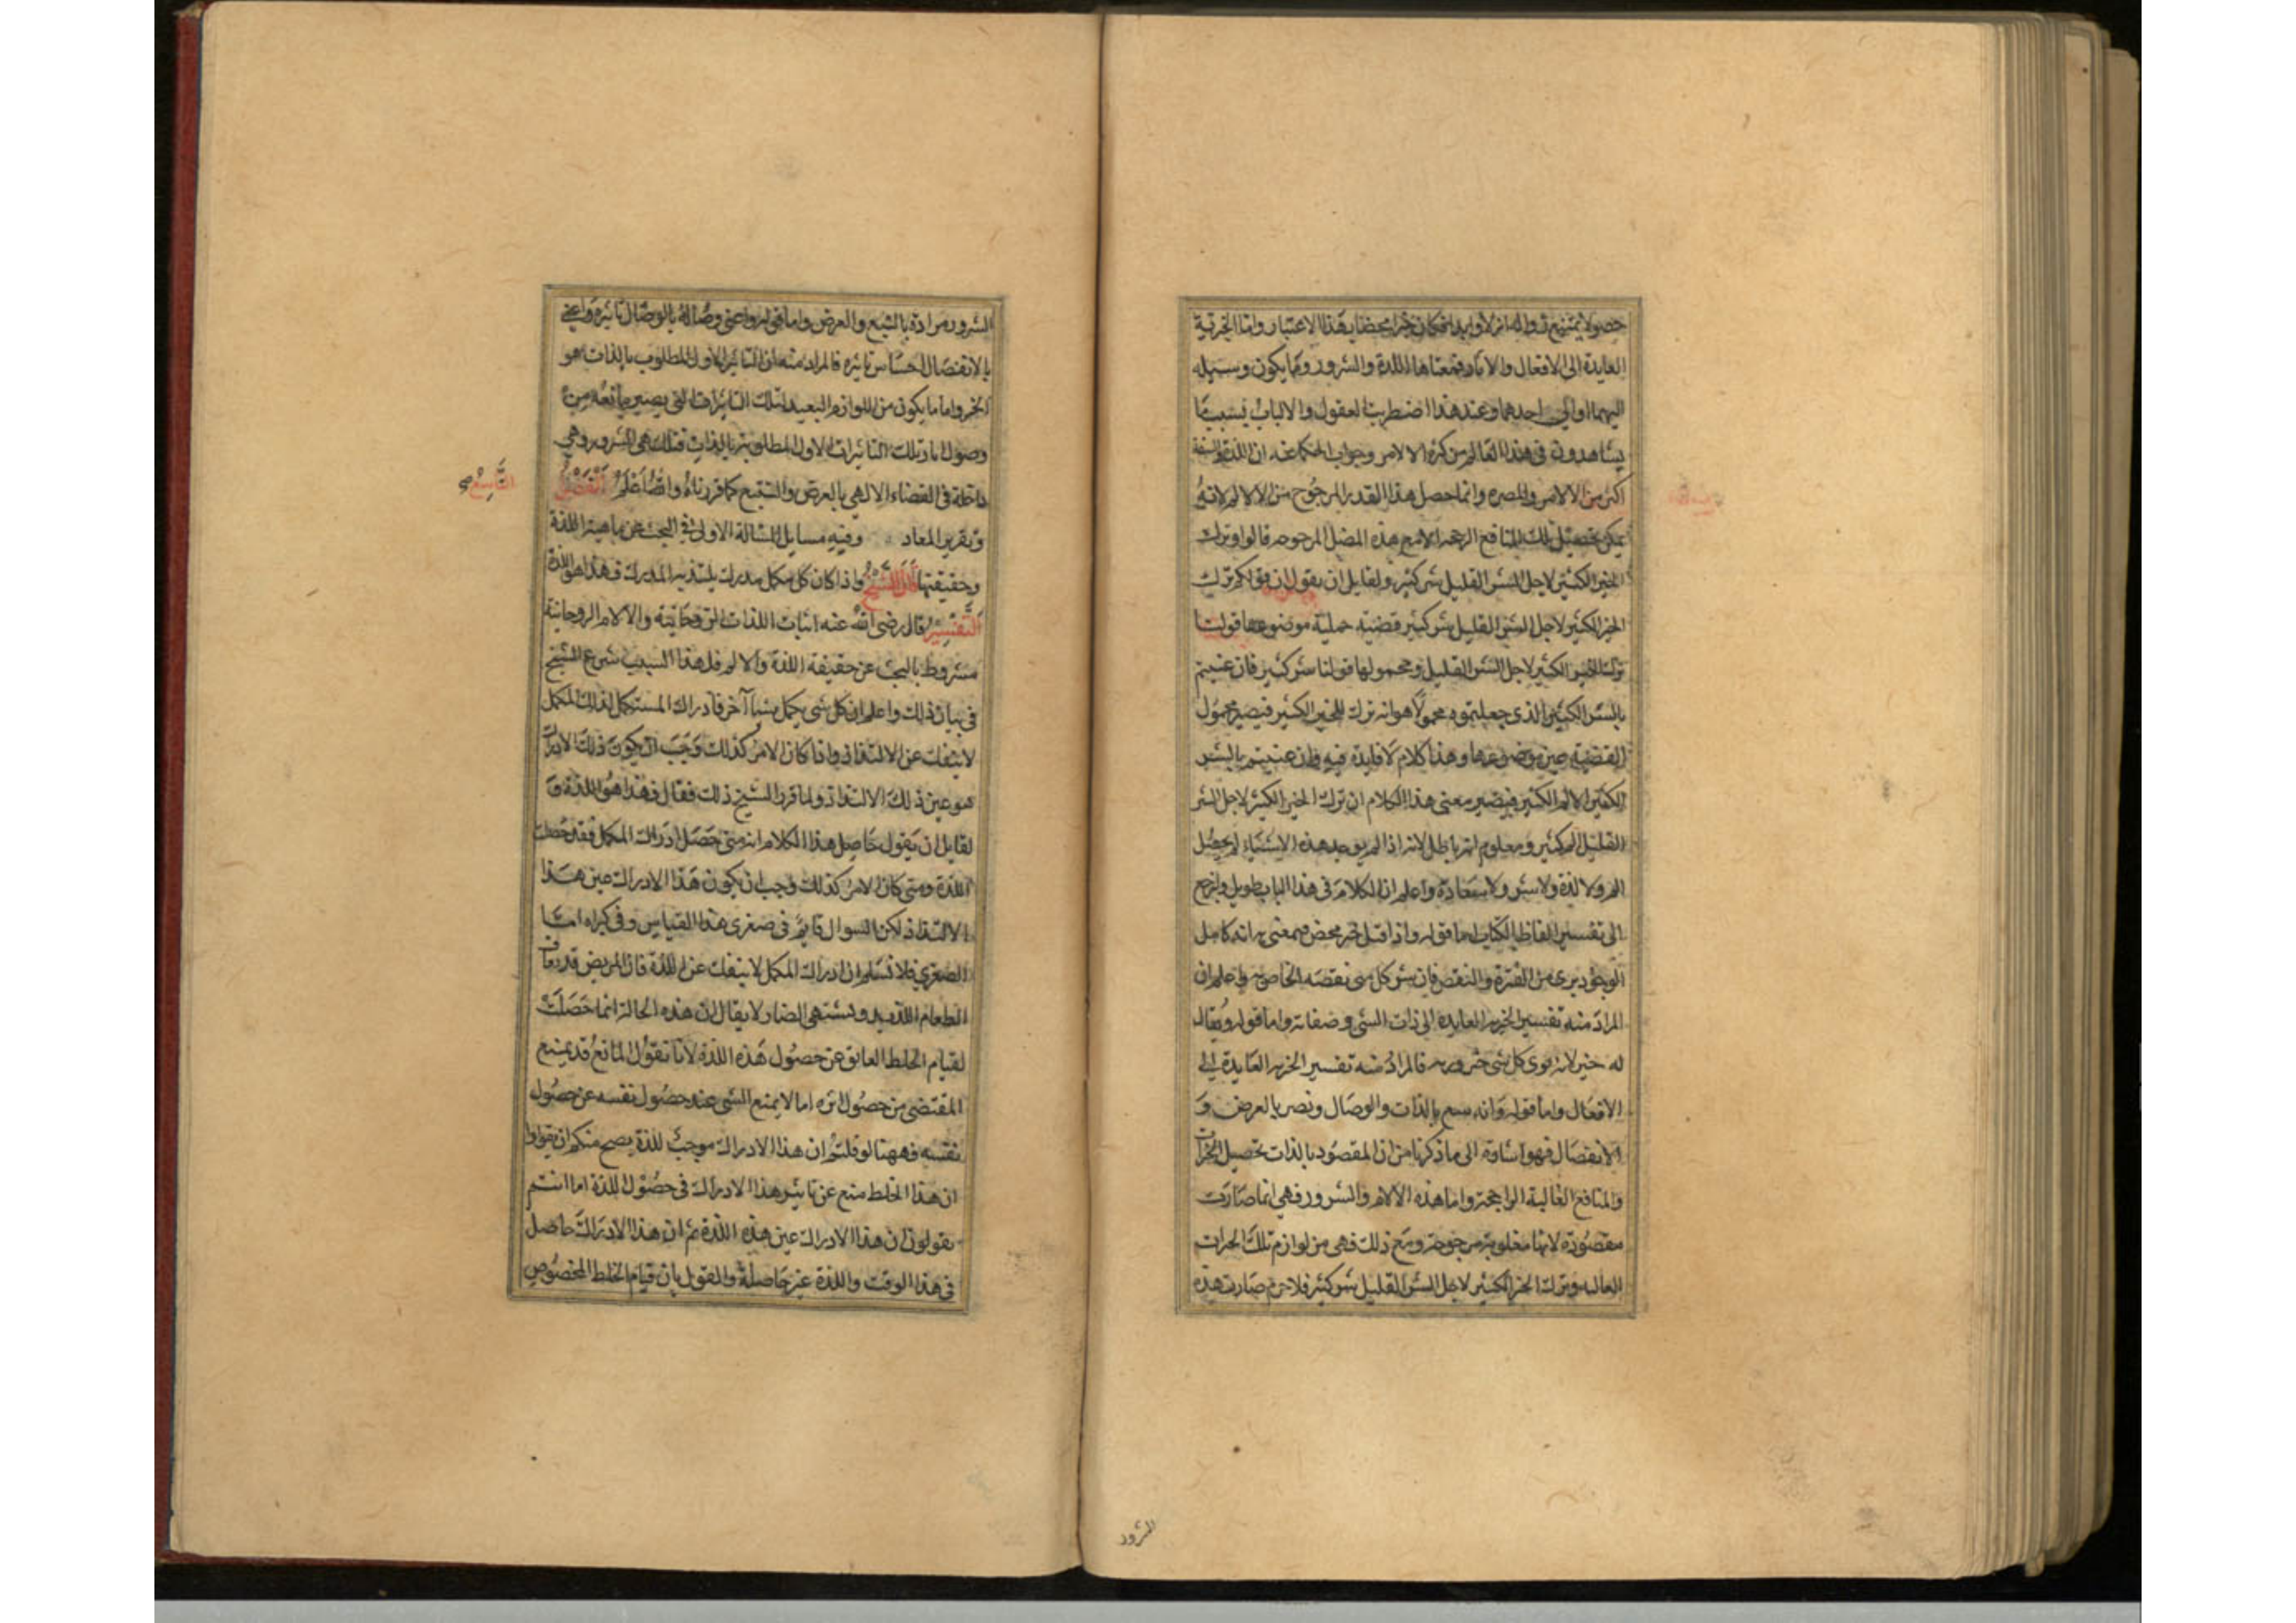 حصولا يمتنع زواله ازلا وابدا فكان خيرا محضا بهذا الاعتبار واما الخيرية
العايدة الى الافعال والاثار فمعناها اللذة والسرور وما يكون وسيلة
اليهما او الى احدهما وعند هذا اضطربت العقول والالباب فبسبب ما
يشاهدون في هذا العالم من كثرة الالام وجواب الحكما عنه ان اللذة
اكثر من الالام والمضره وانما حصل هذا القدر المرجوح من الالام لانه
يمكن تحصيل تلك المنافع الراجحه الا مع هذه المرجوحه قالوا وترك
الخير الكثير لاجل الشر القليل شر كثير ولقايل ان يقول ان قولكم ترك
الخير الكثير لاجل الشر القليل شر كثير قضية حملية موضوعها قولنا
ترك الخير الكثير لاجل الشر القليل ومحمولها قولنا شر كثير فان عنيتم
بالشر الكثير الذي جعلتموه محمولا هو انه ترك للخير الكثير فيصير محمول
القضية عين موضوعها وهذا كلام لا فايدة فيه وان عنيتم بالشر
الكثير الالم الكثير فيصير معنى هذا الكلام ان ترك الخير الكثير لاجل الشر
القليل الم كثير ومعلوم انه باطل لانه اذا لم يوجد هذه الاشياء لم يحصل
الم ولا لذة ولا شر ولا سعادة واعلم ان الكلام في هذا الباب طويل ولنرجع
الى تفسير الفاظ الكتاب اما قوله واذا قيل خير محض فمعنى به انه كامل
الوجود برى من القترة والنقص فان شر كل شى نقصه الخاص به واعلم ان
المراد منه تفسير الخيرية العايدة الى ذات الشى وصفاته واما قوله ويقال
له خير لانه يوى كل شى خيرويه فالمراد منه تفسير الخيريه العايدة الى
الافعال واما قوله وانه ينفع بالذات والوصال ويضر بالعرض و
الانفصال فهو اشارة الى ما ذكرنا من ان المقصود بالذات تحصيل الخيرات
والمنافع الغالبة الراجحة واما هذه الالام والشرور فهي انما صارت
مقصودة لانها مغلوبة مرجوحة ومع ذلك فهي من لوازم تلك الخيرات
الغالبه وترك الخير الكثير لاجل الشر القليل شر كثير فلا جرم صارت هذه
الشرور
الشرور مرادة بالتبع والعرض واما قوله واعنى وصاله بالوصال تاثيره واعنى
بالانفصال احساس تاثيره فالمراد منه ان التاثير الاول المطلوب بالذات هو
الخير واما ما يكون من اللوازم البعيدة لتلك التاثيرات التى يصير مانعه من
وصول اثار تلك التاثيرات الاول المطلوبة بالذات فتلك هي الشرور وهي
داخلة في القضاء الالهي بالعرض والتبع كما قررناه والله اعلم الفصل
التاسع
وتقرير المعاد وفيه مسايل المسالة الاولى في البحث عن ماهية اللذة
وحقيقتها قال الشيخ واذا كان كل مكمل مدرك يلتذ به المدرك فهذا هو اللذة
التفسير قال رضى الله عنه اثبات اللذات الروحانية والالام الروحانية
مشروط بالبحث عن حقيقة اللذة والالم فلهذا السبب شرع الشيخ
في بيان ذلك واعلم ان كل شى يكمل بشيا آخر فادراك المستكمل لذلك المكمل
لا ينفك عن الالتذاذ واذا كان الامر كذلك وجب ان يكون ذلك الادراك
هو عين ذلك الالتذاذ ولما قرر الشيخ ذلك فقال فهذا هو اللذة و
لقايل ان يقول حاصل هذا الكلام انه متى حصل ادراك المكمل فقد حصلت
اللذة ومتى كان الامر كذلك وجب ان يكون هذا الادراك عين هذا
الالتذاذ لكن السوال قايم في صغرى هذا القياس وفي كبراه اما
الصغرى فلا نسلم ان ادراك المكمل لا ينفك عن اللذة فان المريض قد يعاف
الطعام اللذيذ ويشتهي الضار لا يقال ان هذه الحالة انما حصلت
لقيام الخلط العايق عن حصول هذه اللذة لانا نقول المانع قد يمنع
المقتضى من حصول اثره اما لا يمنع الشى عند حصول نفسه عن حصول
نفسه فههنا لو قلتم ان هذا الادراك موجب للذة يصح منكم ان يقولوا
ان هذا الخلط منع عن تاثير هذا الادراك في حصول اللذة اما انتم
تقولون ان هذا الادراك عين هذه اللذة ثم ان هذا الادراك حاصل
في هذا الوقت واللذة غير حاصلة والقول بان قيام الخلط المخصوص